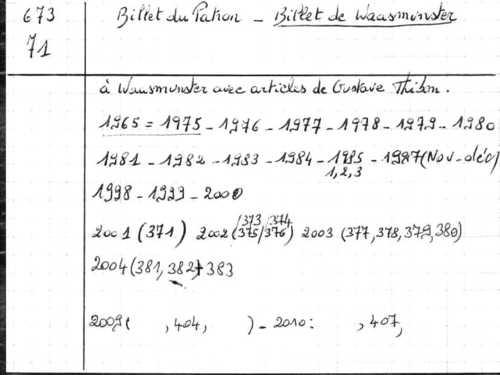 673
71
Billet du Patron - Billet de Waasmunster
à Waasmunster avec articles de Gustave Thibon.
1965 = 1975 - 1976 - 1977 - 1978 - 1979 - 1980
1981 - 1982 - 1983 - 1984 - 1985 - 1987 (Nov-déc)
1,2,3
1998 - 1999 - 2000
/373/374
2001 (371) 2002 (375/376) 2003 (377, 378, 379, 380)
2004 (381, 382)+383
2009 ( , 404, ) - 2010 : , 407,